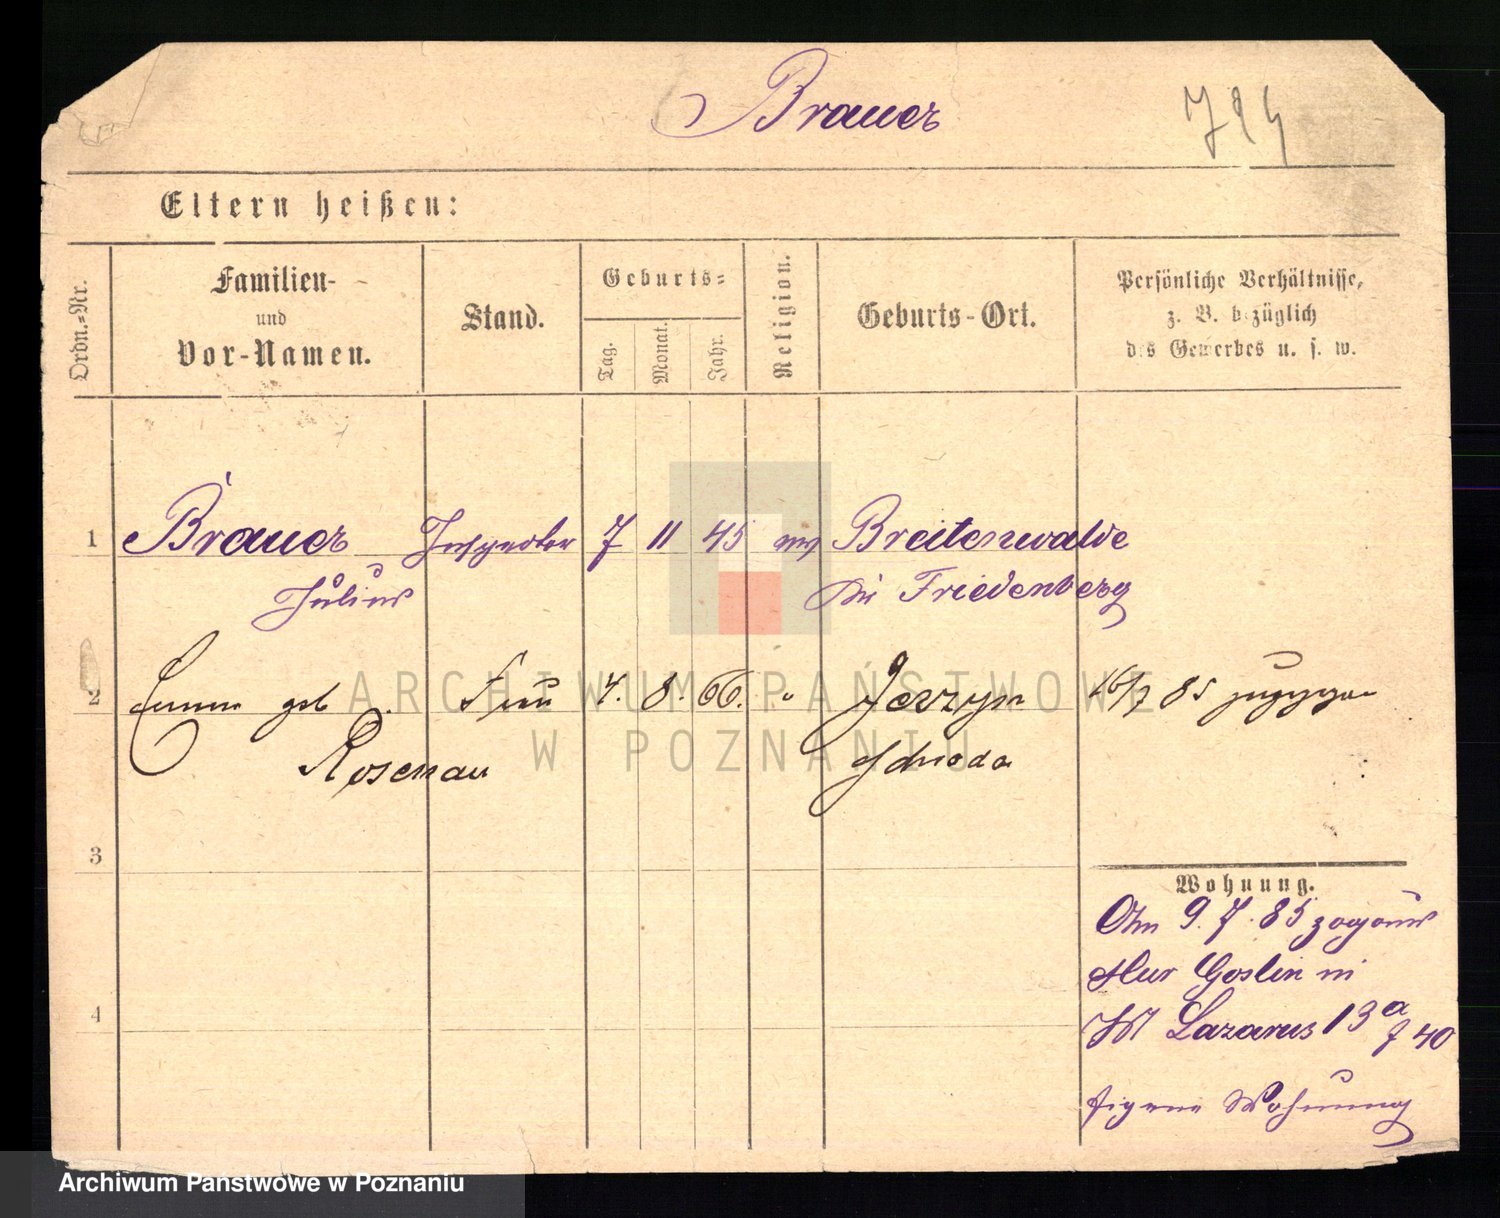 Brauer 724
Eltern heißen:
Ordn.-Nr.
Familien-
und
Vor-Namen.
Stand.
Geburts-
Tag.
Monat.
Jahr.
Religion.
Geburts-Ort.
Persönliche Verhältnisse,
z. B. bezüglich
des Gewerbes u. s. w.
1 Brauer Inspector 7 11 45 Breitenwalde
Julius Friedenberg
2 geb Frau 4. 8. 66. " Jerzyn 16/7 85
Rosenau Schroda
3
Wohnung.
9. 7. 85
Goslin in
St Lazarus 13a 40
4
eigene Wohnung
ARCHIWUM PAŃSTWOWE
W POZNANIU
Archiwum Państwowe w Poznaniu